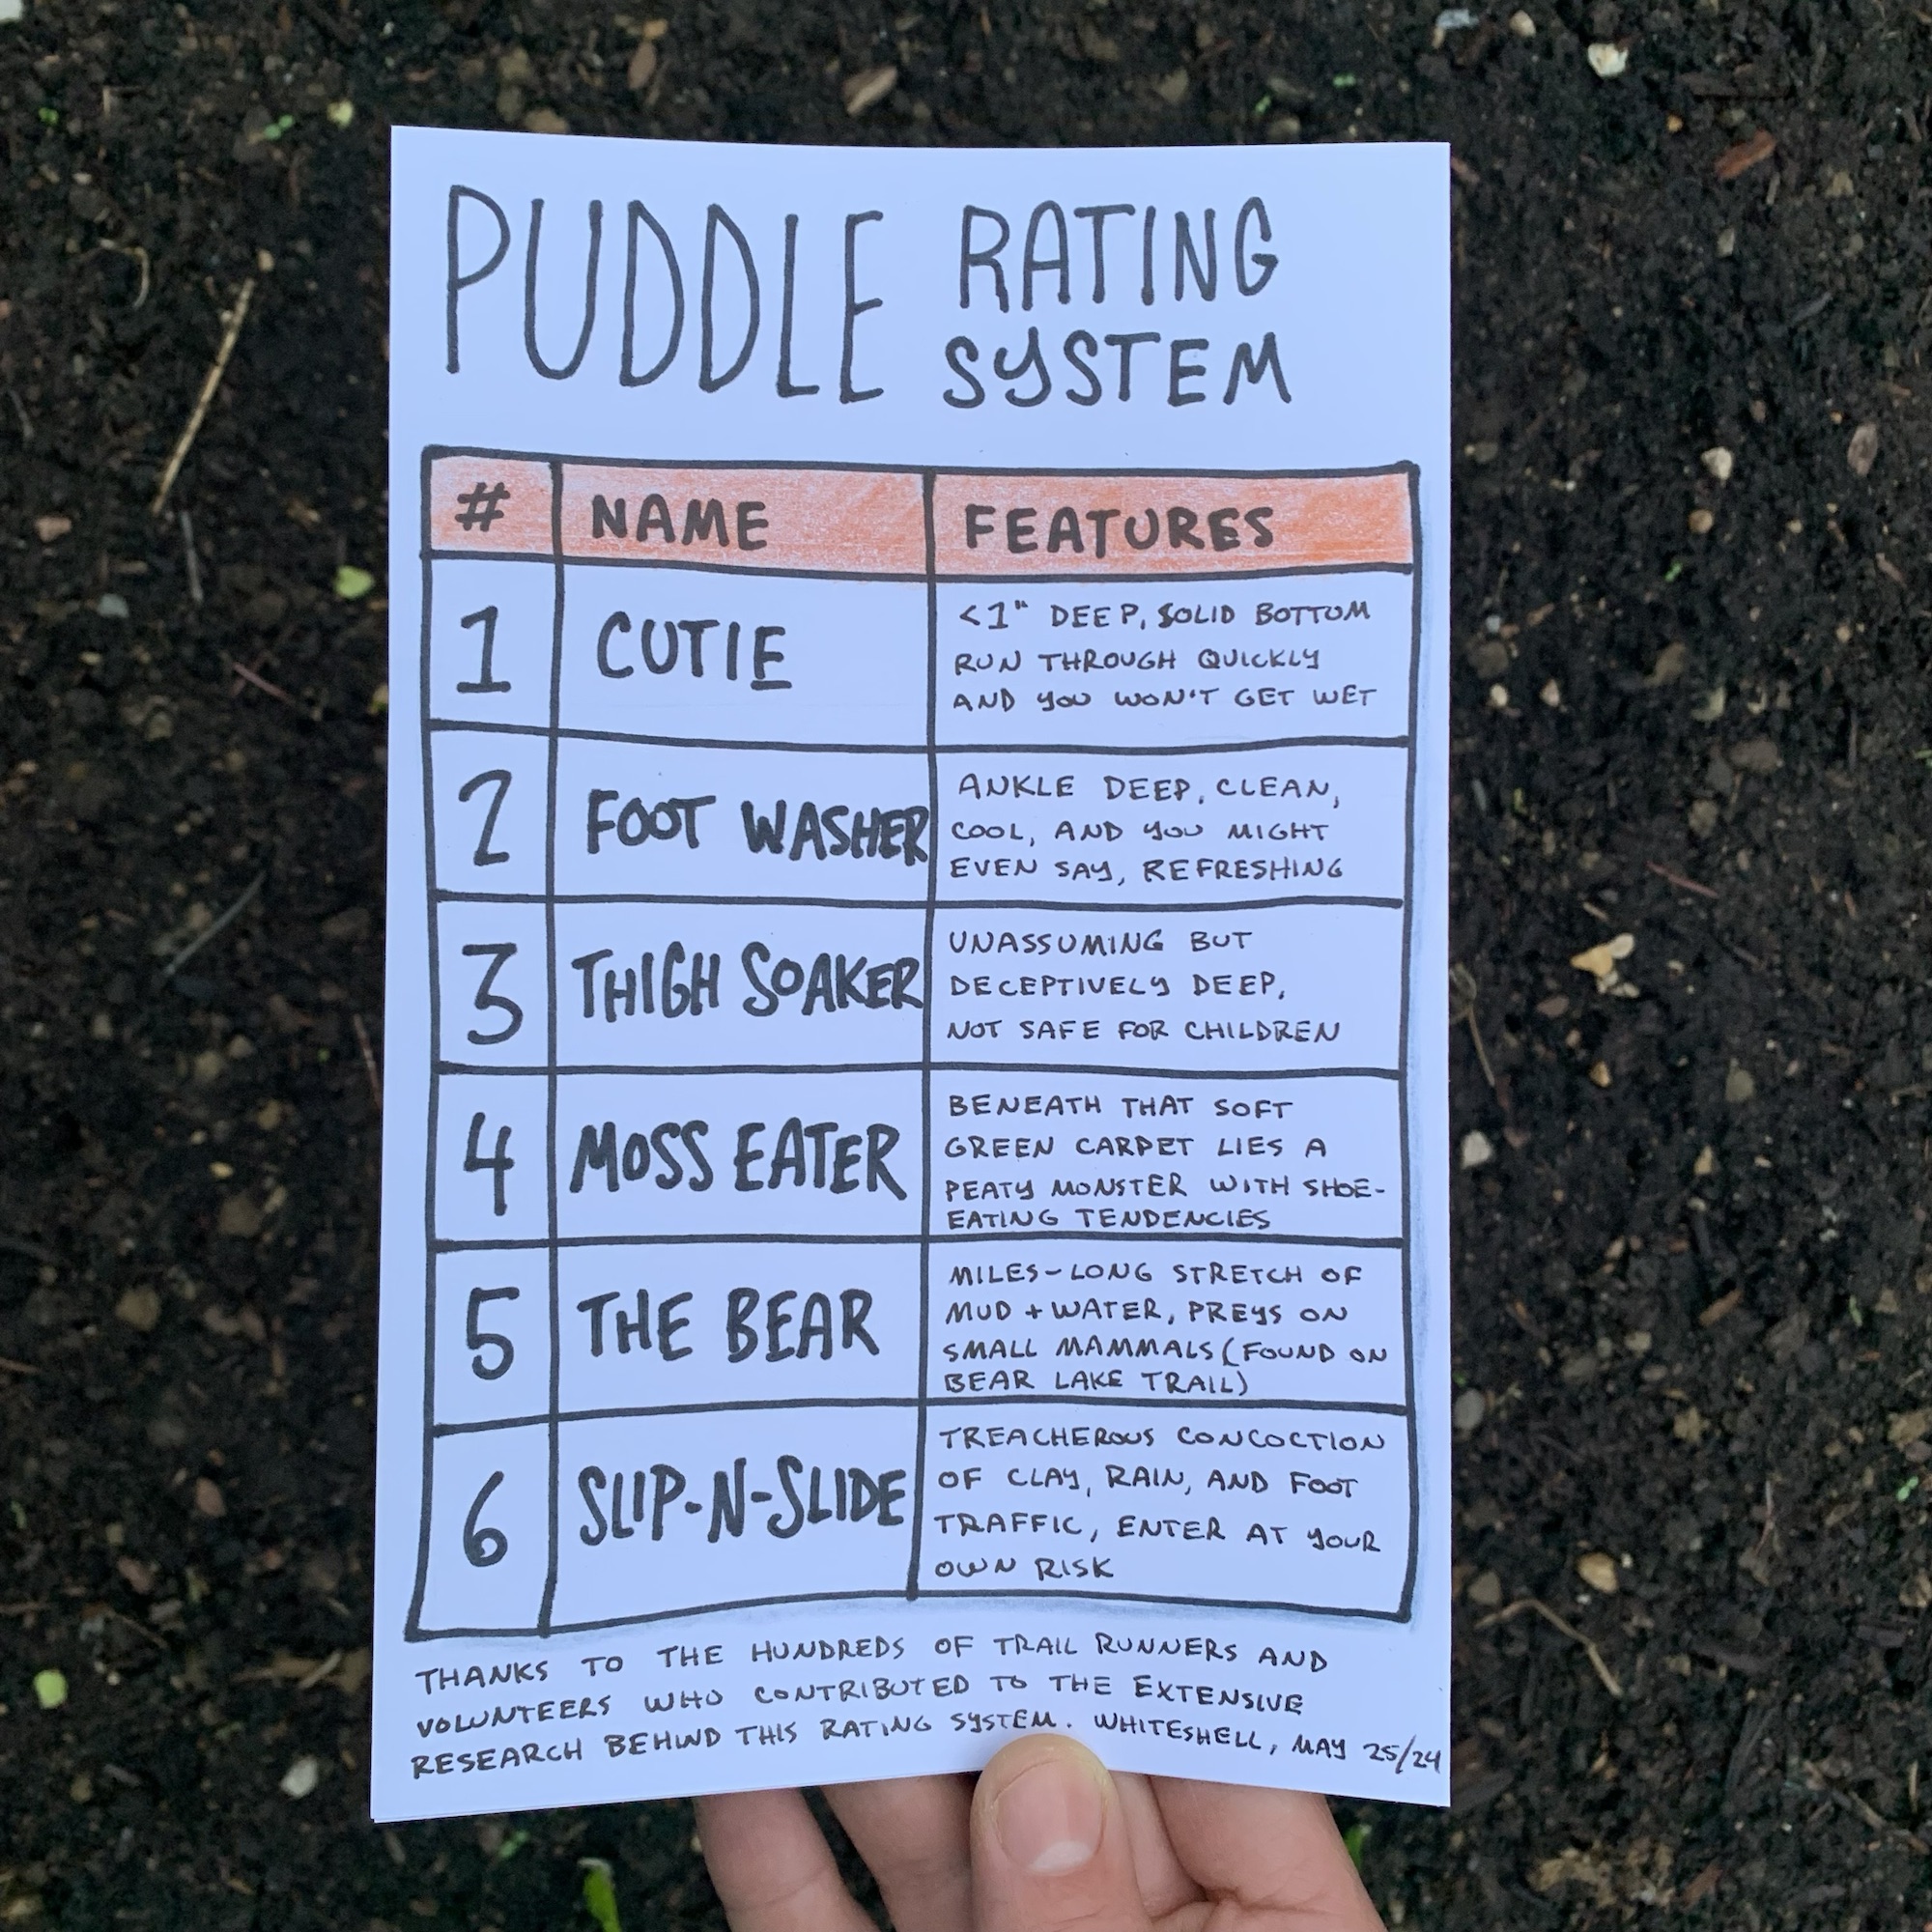 PUDDLE RATING
SYSTEM
# NAME FEATURES
1 CUTIE
<1" DEEP, SOLID BOTTOM
RUN THROUGH QUICKLY
AND YOU WON'T GET WET
2 FOOT WASHER
ANKLE DEEP, CLEAN,
COOL, AND YOU MIGHT
EVEN SAY, REFRESHING
3 THIGH SOAKER
UNASSUMING BUT
DECEPTIVELY DEEP,
NOT SAFE FOR CHILDREN
4 MOSS EATER
BENEATH THAT SOFT
GREEN CARPET LIES A
PEATY MONSTER WITH SHOE-
EATING TENDENCIES
5 THE BEAR
MILES-LONG STRETCH OF
MUD + WATER, PREYS ON
SMALL MAMMALS (FOUND ON
BEAR LAKE TRAIL)
6 SLIP-N-SLIDE
TREACHEROUS CONCOCTION
OF CLAY, RAIN, AND FOOT
TRAFFIC, ENTER AT YOUR
OWN RISK
THANKS TO THE HUNDREDS OF TRAIL RUNNERS AND
VOLUNTEERS WHO CONTRIBUTED TO THE EXTENSIVE
RESEARCH BEHIND THIS RATING SYSTEM. WHITESHELL, MAY 25/24